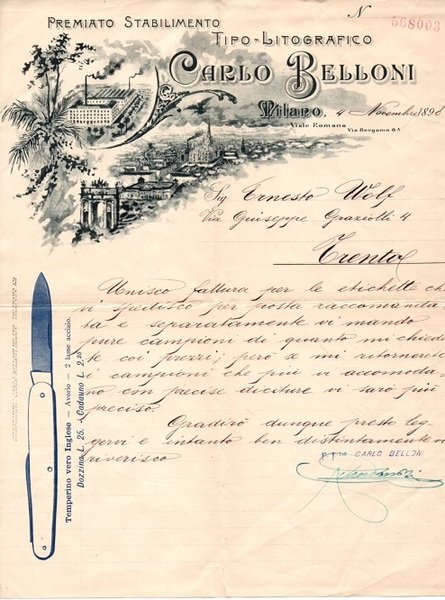 N
568003
PREMIATO STABILIMENTO
TIPO-LITOGRAFICO
CARLO BELLONI
Milano, 4 Novembre 1898
Viale Romana
Via Bergamo 6A
Sig Ernesto Wolf
Via Guiseppe Graziolli 4
Trento
Unisco fattura per le etichette che
vi spedisco per posta raccomanda
ta e separatamente vi mando
pure campioni di quanto mi chiede
te coi prezzi; però se mi ritornerete
i campioni che più vi accomoda
no con precise diciture vi sarò più
preciso.
Gradirò dunque presto leg
gervi e intanto ben distintamente vi
riverisco
p. pra CARLO BELLONI
Temperino vero Inglese — Avorio — 2 lame acciaio.
Dozzina L. 25. — Cadauno L. 2,25